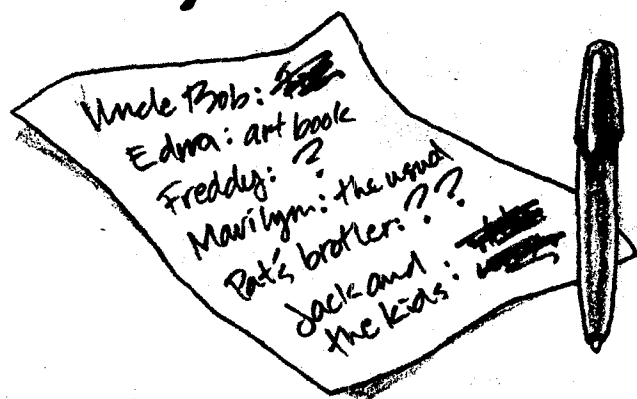 Uncle Bob:
Edna: art book
Freddy: ?
Marilym: the usual
Pat's brother: ??
Jack and
the kids: